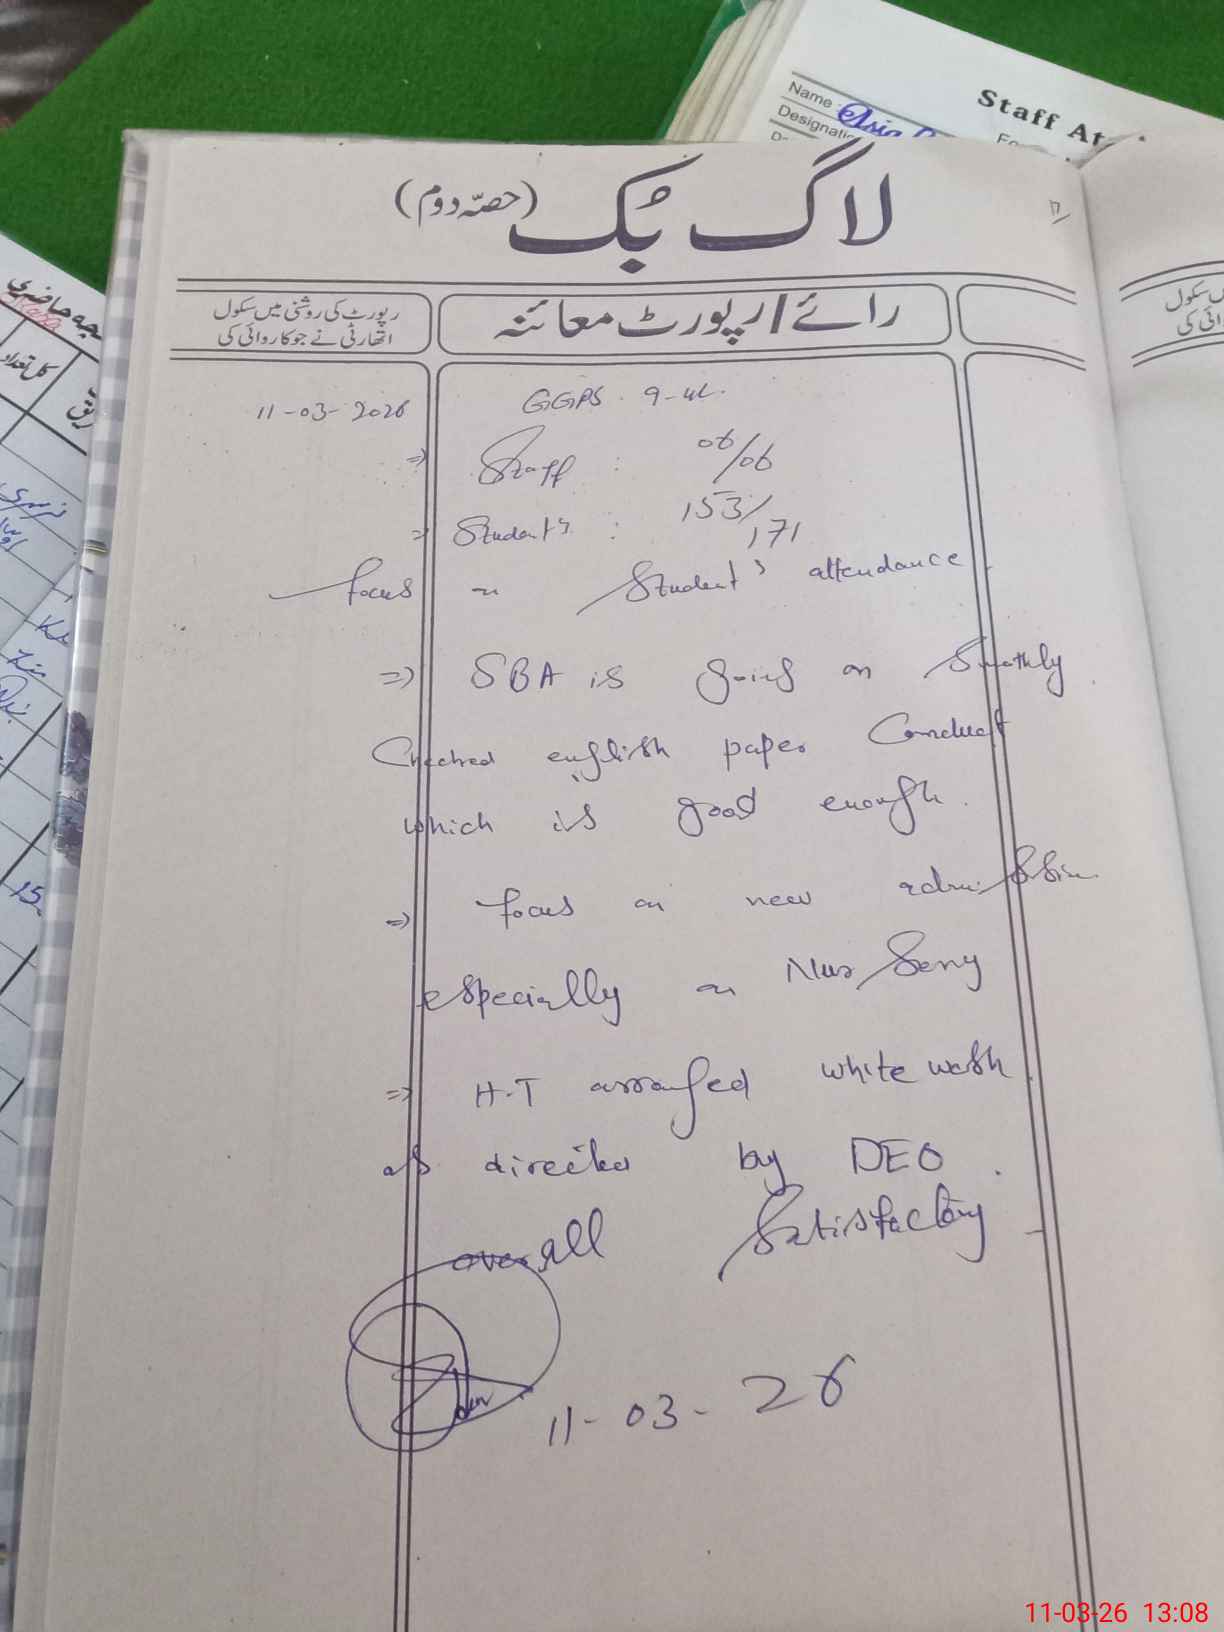 Staff At
Name :
Designatio
لاگ بُک (حصّہ دوم)
رائے/رپورٹ معائنہ
رپورٹ کی روشنی میں سکول
اتھارٹی نے جو کاروائی کی
کل تعداد
11-03-2026
GGPS. 9-4L.
=> Staff : 06/06
=> Student's : 153/171
focus on Student's attendance.
=> SBA is going on Smothly.
Checked english paper Conduct
which is good enough.
=> focus on new admission
especially on Nursery
=> H-T arranged white wash
as directed by DEO.
overall Satisfactory
11-03-26
11-03-26 13:08